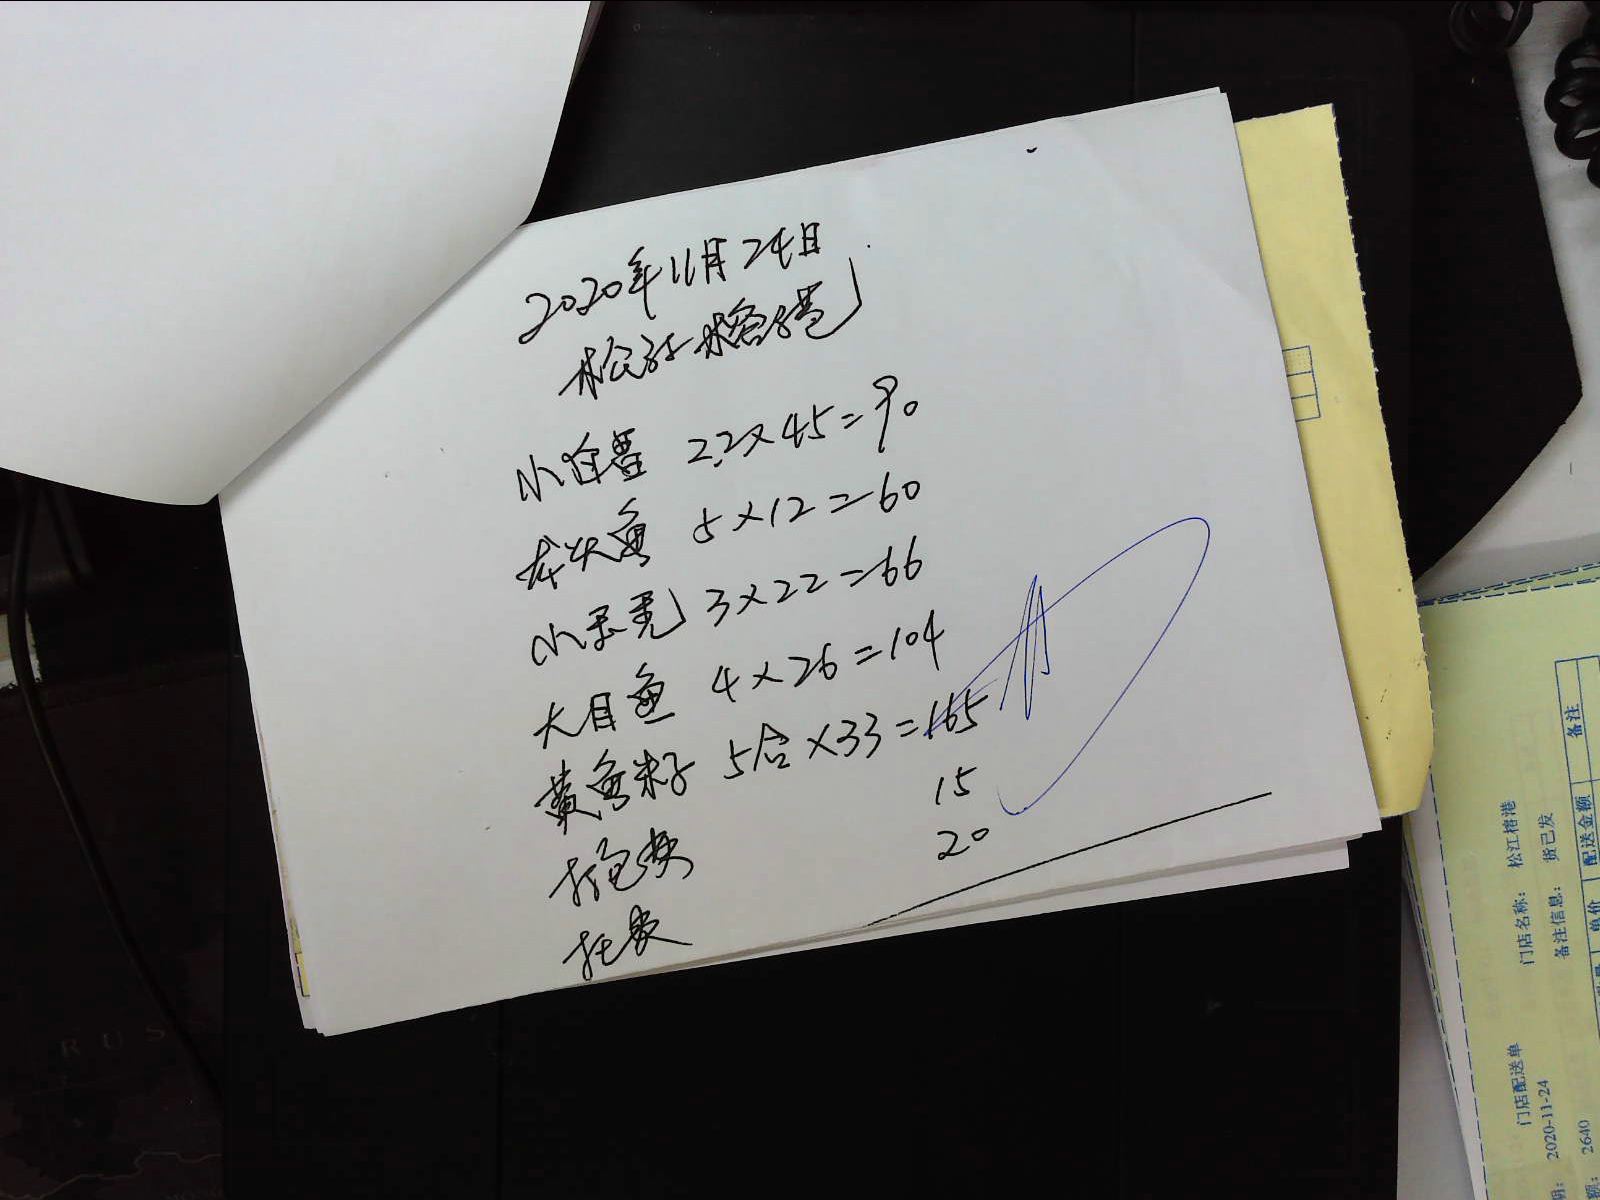 2020年11月24日
松江榕港
小白鲳 2.2×45=90
龙头鱼 5×12=60
小 3×22=66
大目鱼 4×26=104
黄鱼籽 5合×33=165
打包费 15
托费 20
门店配送单
2020-11-24
2640
门店名称: 松江榕港
备注信息: 货已发
单价 配送金额 备注
RUS